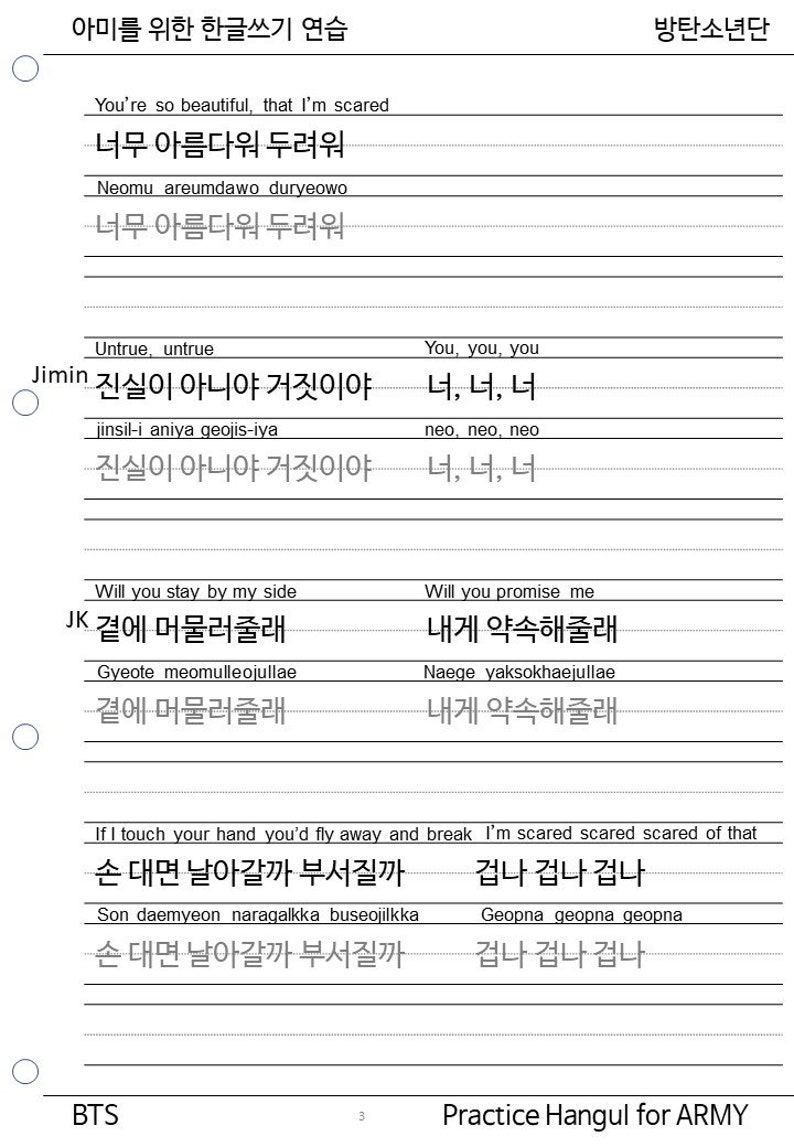 아미를 위한 한글쓰기 연습 방탄소년단
You're so beautiful, that I'm scared
너무 아름다워 두려워
Neomu areumdawo duryeowo
너무 아름다워 두려워
Untrue, untrue You, you, you
Jimin 진실이 아니야 거짓이야 너, 너, 너
jinsil-i aniya geojis-iya neo, neo, neo
진실이 아니야 거짓이야 너, 너, 너
Will you stay by my side Will you promise me
JK 곁에 머물러줄래 내게 약속해줄래
Gyeote meomulleojullae Naege yaksokhaejullae
곁에 머물러줄래 내게 약속해줄래
If I touch your hand you'd fly away and break I'm scared scared scared of that
손 대면 날아갈까 부서질까 겁나 겁나 겁나
Son daemyeon naragalkka buseojilkka Geopna geopna geopna
손 대면 날아갈까 부서질까 겁나 겁나 겁나
BTS 3 Practice Hangul for ARMY